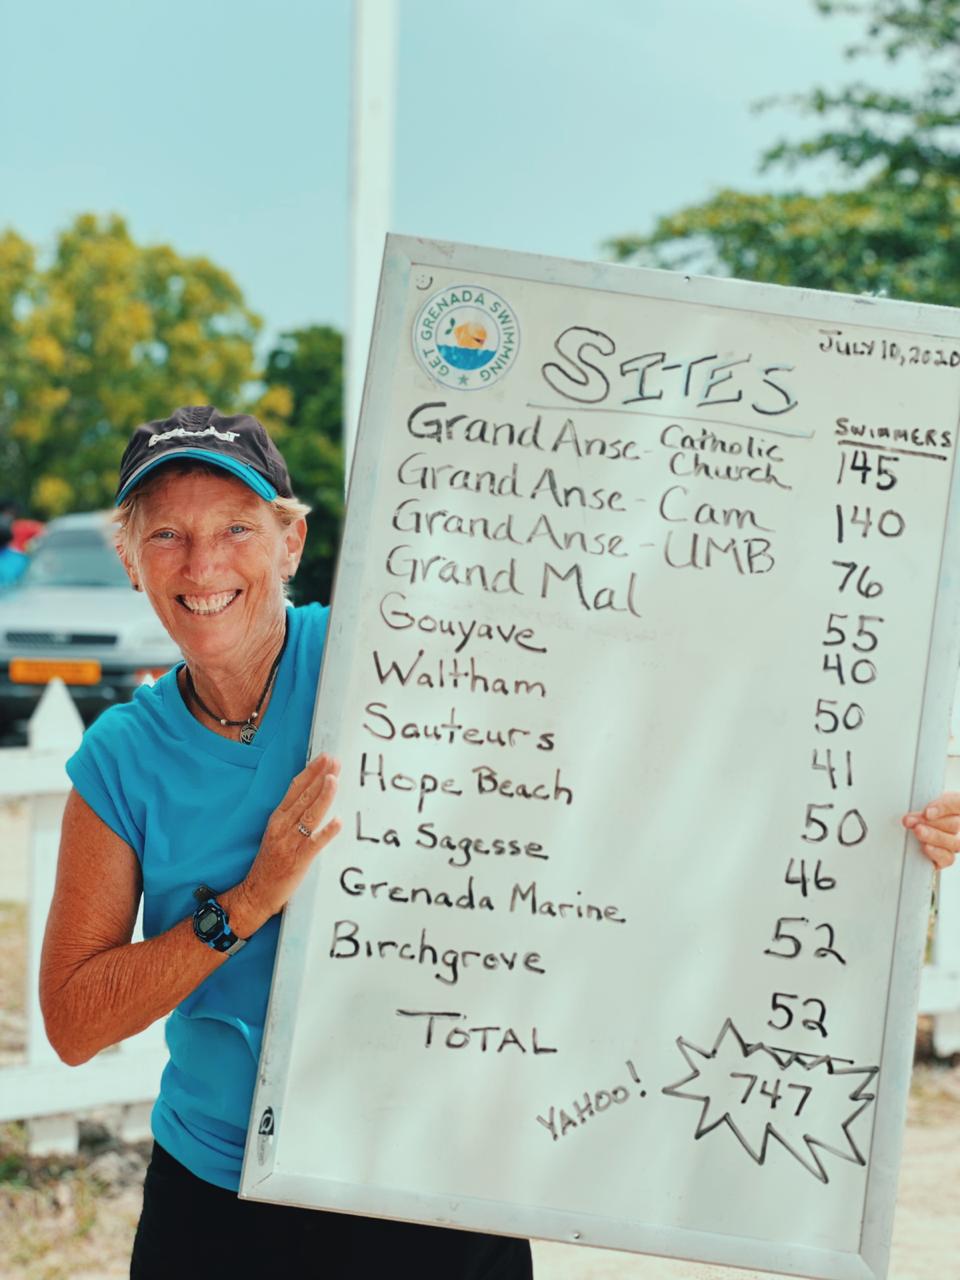 GET GRENADA SWIMMING
July 10, 2020
SITES
SWIMMERS
Grand Anse - Catholic Church 145
Grand Anse - Cam 140
Grand Anse - UMB 76
Grand Mal 55
Gouyave 40
Waltham 50
Sauteurs 41
Hope Beach 50
La Sagesse 46
Grenada Marine 52
Birchgrove 52
TOTAL 747
YAHOO!